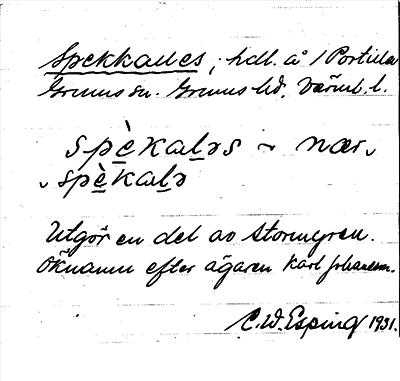 Spekkalles, hdl. å 1 Portilla
Grums sn. Grums hd. Värml. l.
spèkaləs ~ nær.
spèkalə
Utgör en del av Stormyren.
Öknamn efter ägaren Karl Johansson.
C.W. Esping 1931.